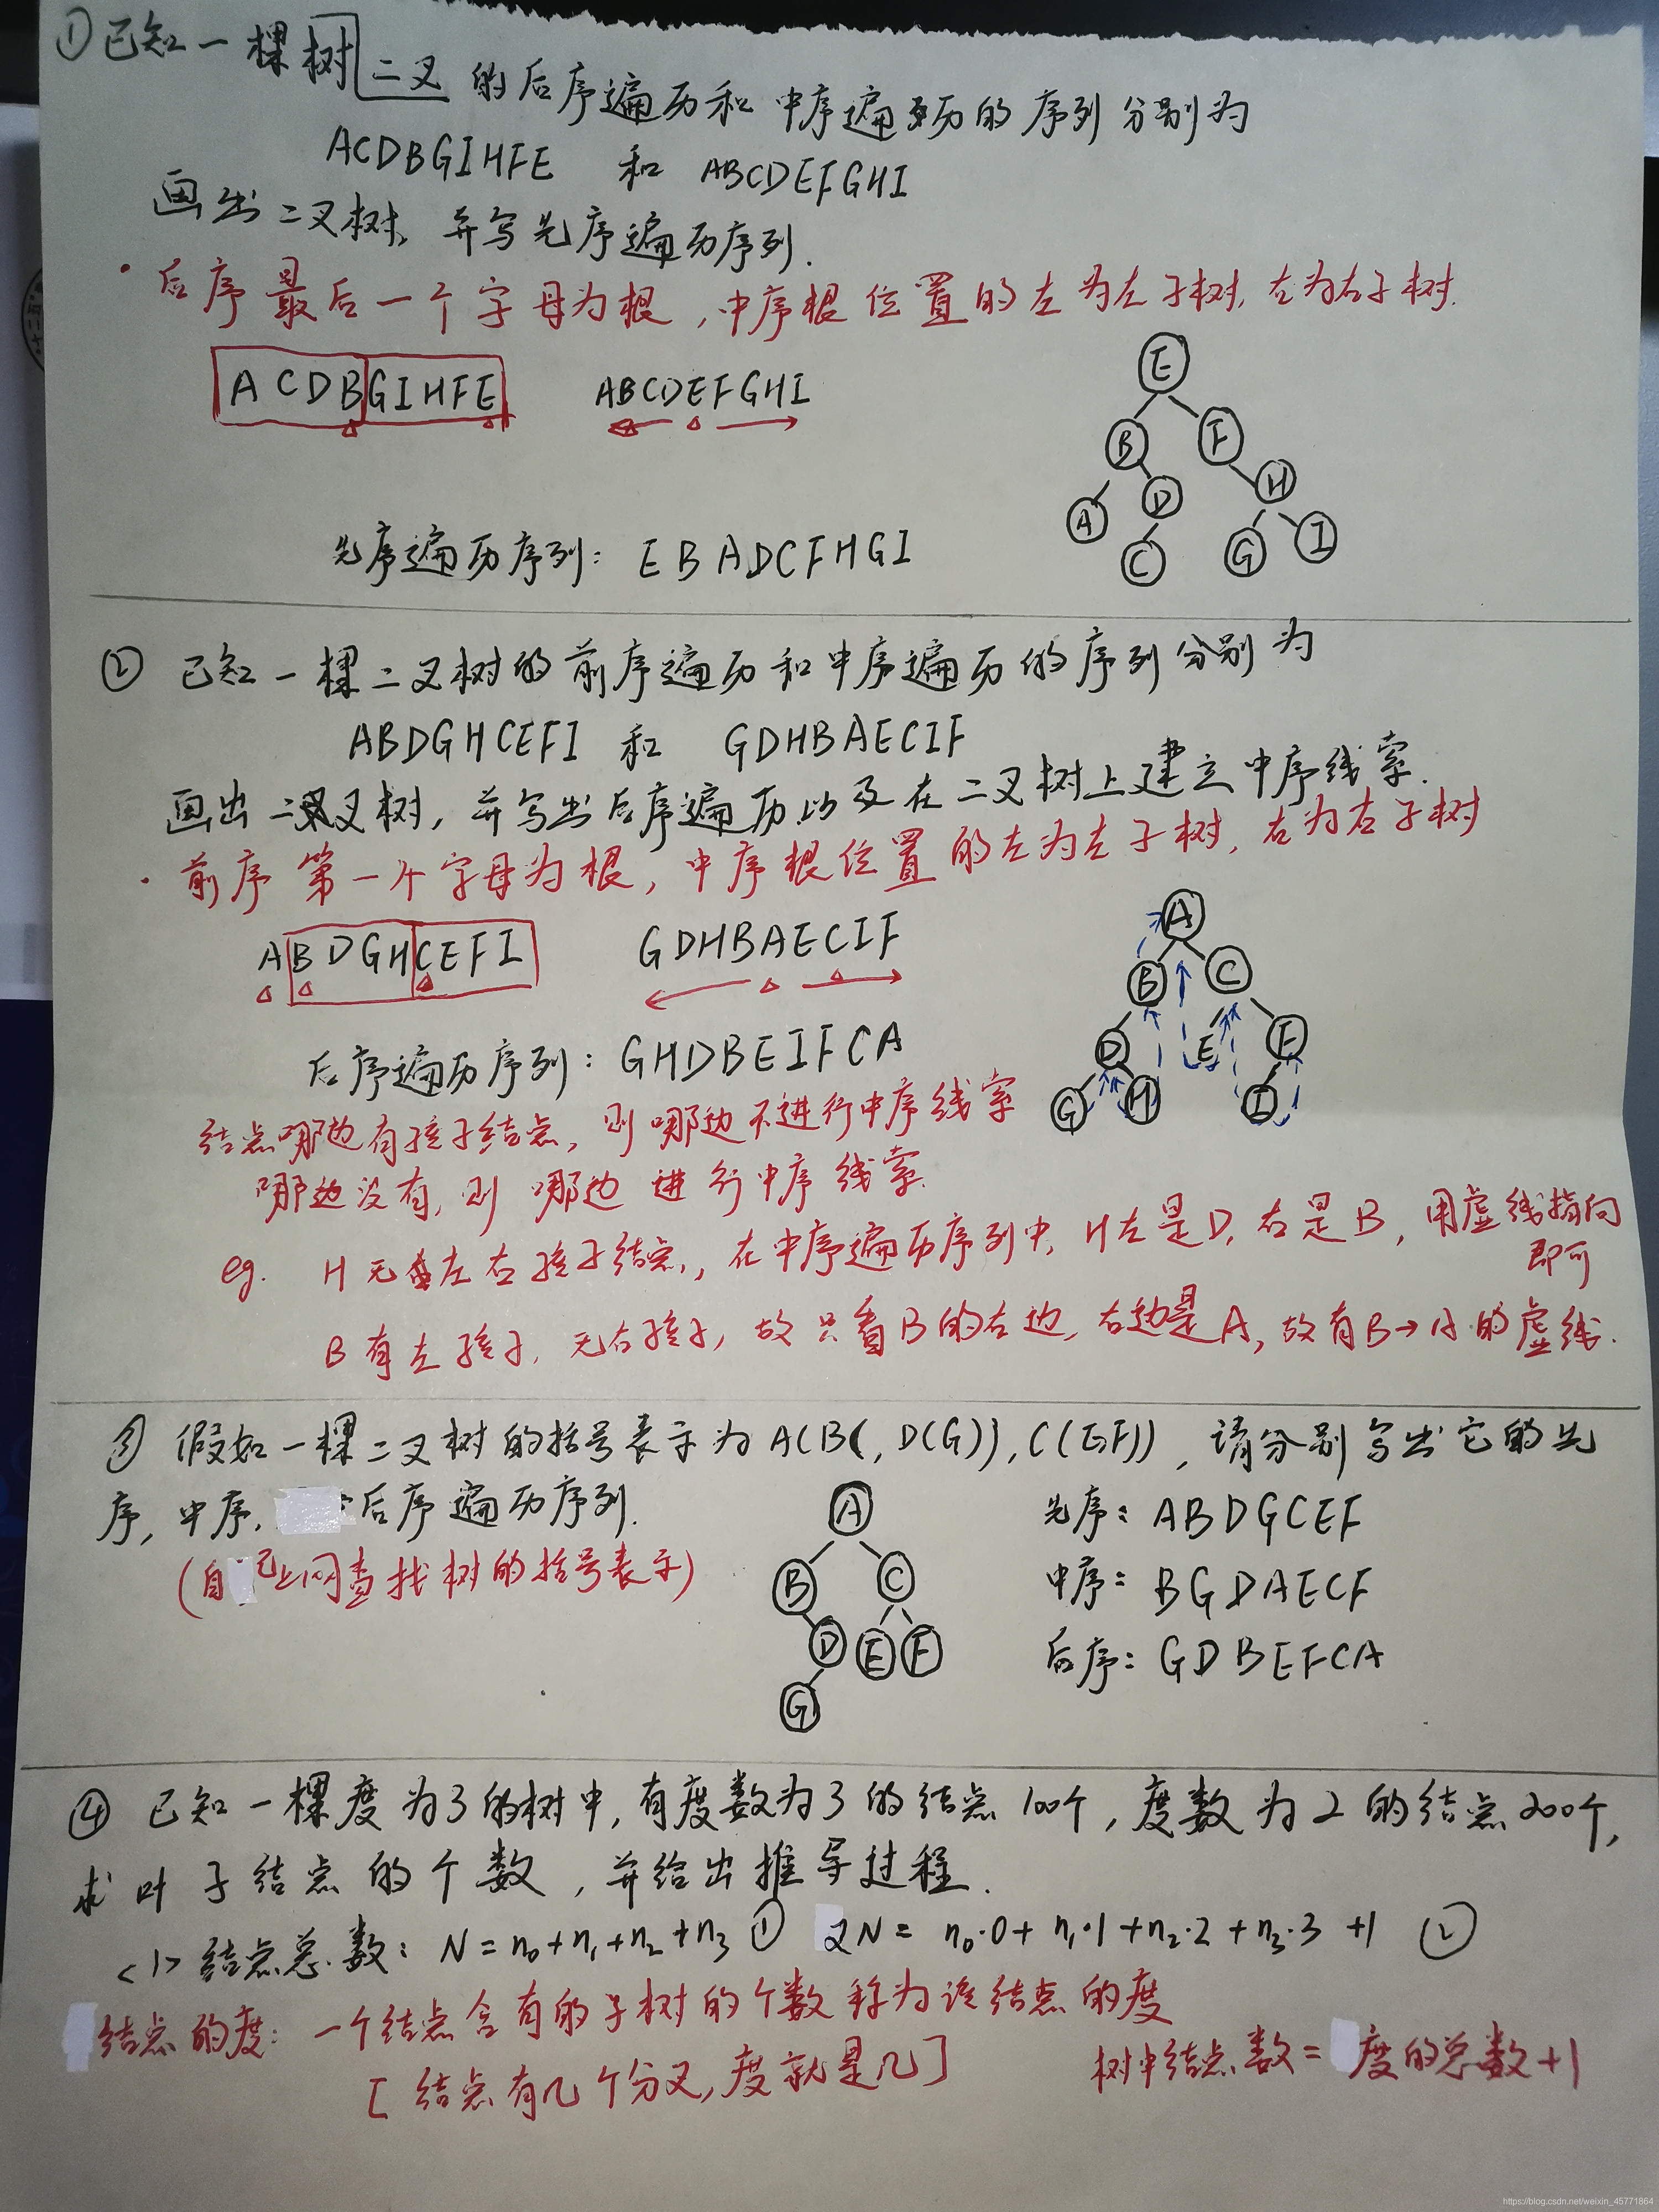 ①已知一棵树二叉的后序遍历和中序遍历的序列分别为
ACDBGIHFE 和 ABCDEFGHI
画出二叉树,并写先序遍历序列.
·后序最后一个字母为根,中序根位置的左为左子树,右为右子树.
ACDBGIHFE ABCDEFGHI
E
B F
A D H
C G I
先序遍历序列: EBADCFHGI
② 已知一棵二叉树的前序遍历和中序遍历的序列分别为
ABDGHCEFI 和 GDHBAECIF
画出二叉树,并写出后序遍历以及在二叉树上建立中序线索.
·前序第一个字母为根,中序根位置的左为左子树,右为右子树
ABDGHCEFI GDHBAECIF
A
B C
D E F
G H I
后序遍历序列: GHDBEIFCA
结点哪边有孩子结点,则哪边不进行中序线索
哪边没有,则哪边进行中序线索.
eg. H无左右孩子结点,在中序遍历序列中,H左是D,右是B,用虚线指向
即可
B有左孩子,无右孩子,故只看B的右边,右边是A,故有B→A的虚线.
③ 假如一棵二叉树的括号表示为A(B(,D(G)),C(E,F)),请分别写出它的先
序,中序,后序遍历序列.
(自己上网查找树的括号表示)
A
B C
D E F
G
先序: ABDGCEF
中序: BGDAECF
后序: GDBEFCA
④ 已知一棵度为3的树中,有度数为3的结点100个,度数为2的结点200个,
求叶子结点的个数,并给出推导过程.
<1>结点总数: N=n₀+n₁+n₂+n₃ ① 2N= n₀·0+n₁·1+n₂·2+n₃·3 +1 ②
结点的度: 一个结点含有的子树的个数称为该结点的度
[结点有几个分叉,度就是几] 树中结点数=度的总数+1
https://blog.csdn.net/weixin_45771864